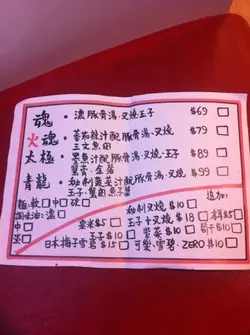 魂 · 濃豚骨湯·叉燒王子 $69 □
火魂 · 蕃茄辣汁配豚骨湯·叉燒 $79 □
三文魚肉
太極 · 黑魚汁配豚骨湯·叉燒·王子 $89 □
蟹膏·金箔 $99 □
青龍 · 秘制青菜汁配豚骨湯·叉燒
王子·蟹肉·魚子
麵:軟□中□硬□ 秘制叉燒 $10 □ 追加:
調味油:濃□ 粟米$5 □ 王子+叉燒 $18 □ 木耳$5 □
中□ 王子$10 □ 紫菜 $10 □ 筍干$10 □
淡□ 日本梅子雪葩$15 □ 可樂·雪碧·ZERO $10 □